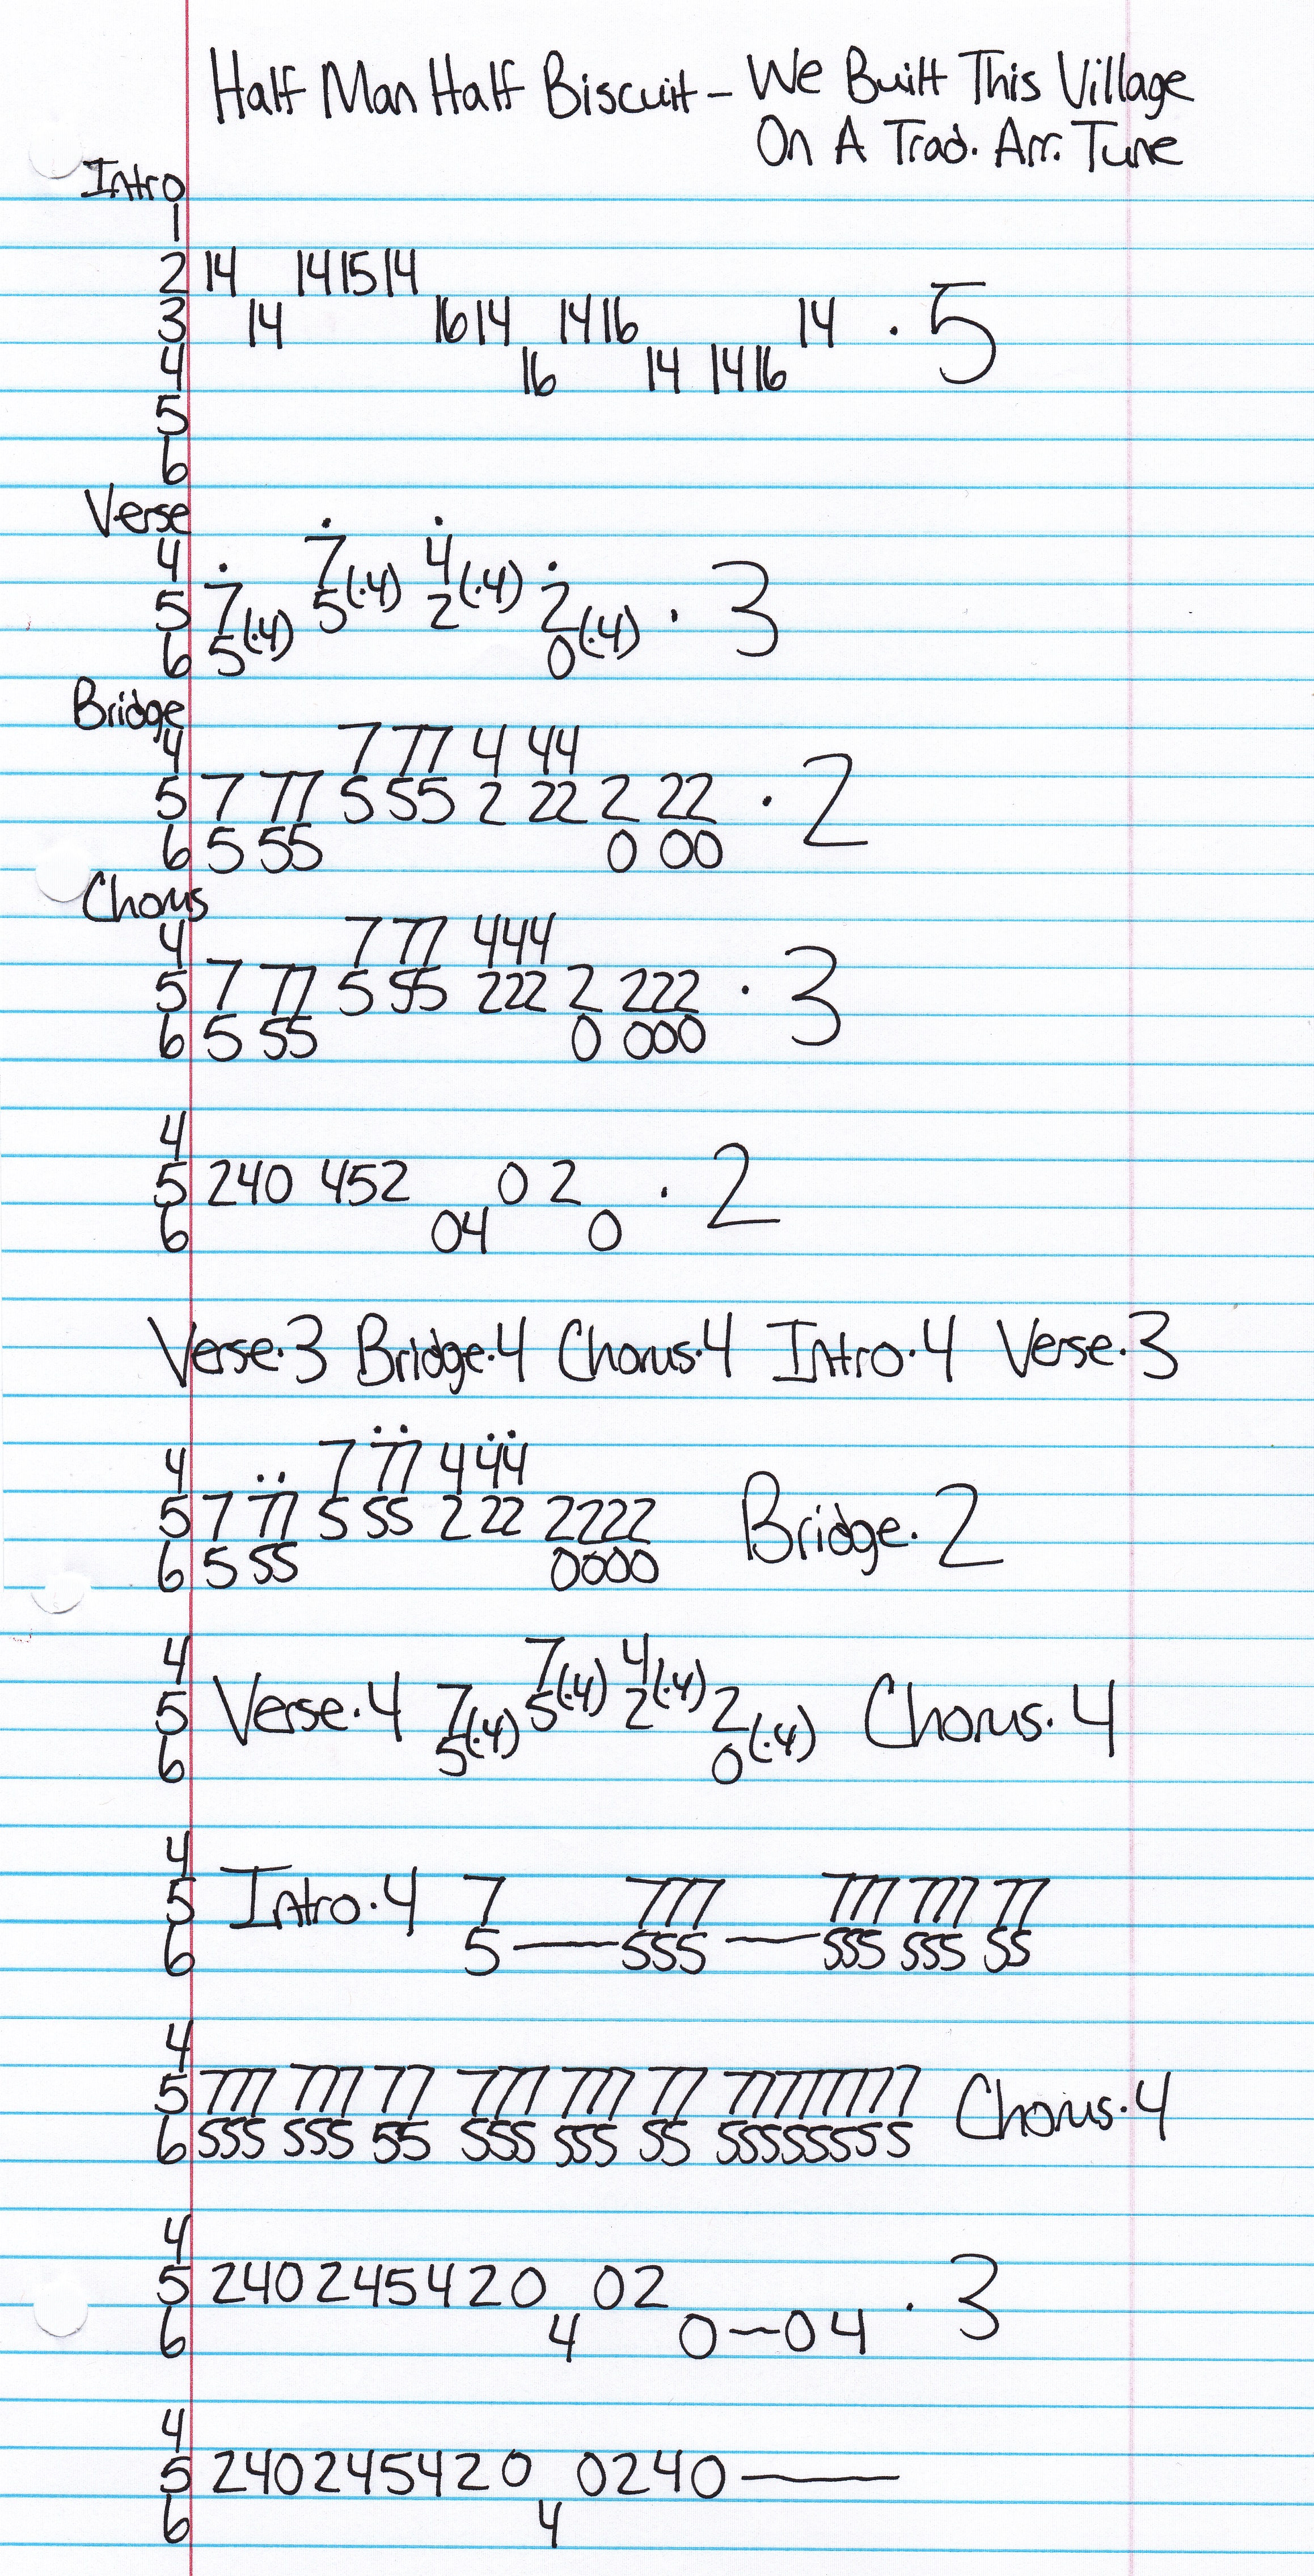 Half Man Half Biscuit - We Built This Village
On A Trad. Arr. Tune
Intro
1
2 14 14 15 14
3 14 16 14 14 16 14 · 5
4 16 14 14 16
5
6
Verse
4 7(·4) 4(·4)
5 7(·4) 5 2 2(·4) · 3
6 5 0
Bridge
4 7 77 4 44
5 7 77 5 55 2 22 2 22 · 2
6 5 55 0 00
Chorus
4 7 77 444
5 7 77 5 55 222 2 222 · 3
6 5 55 0 000
4
5 240 452 0 2 · 2
6 04 0
Verse·3 Bridge·4 Chorus·4 Intro·4 Verse·3
4 7 77 444
5 7 77 5 55 2 22 2222 Bridge·2
6 5 55 0000
4 7(·4) 4(·4)
5 Verse·4 7(·4) 5 2 2(·4) Chorus·4
6 5 0
4
5 Intro·4 7 777 777 777 77
6 5 — 555 — 555 555 55
4
5 777 777 77 777 777 77 77777777 Chorus·4
6 555 555 55 555 555 55 55555555
4
5 240245420 02 · 3
6 4 0–04
4
5 240245420 0240 —
6 4